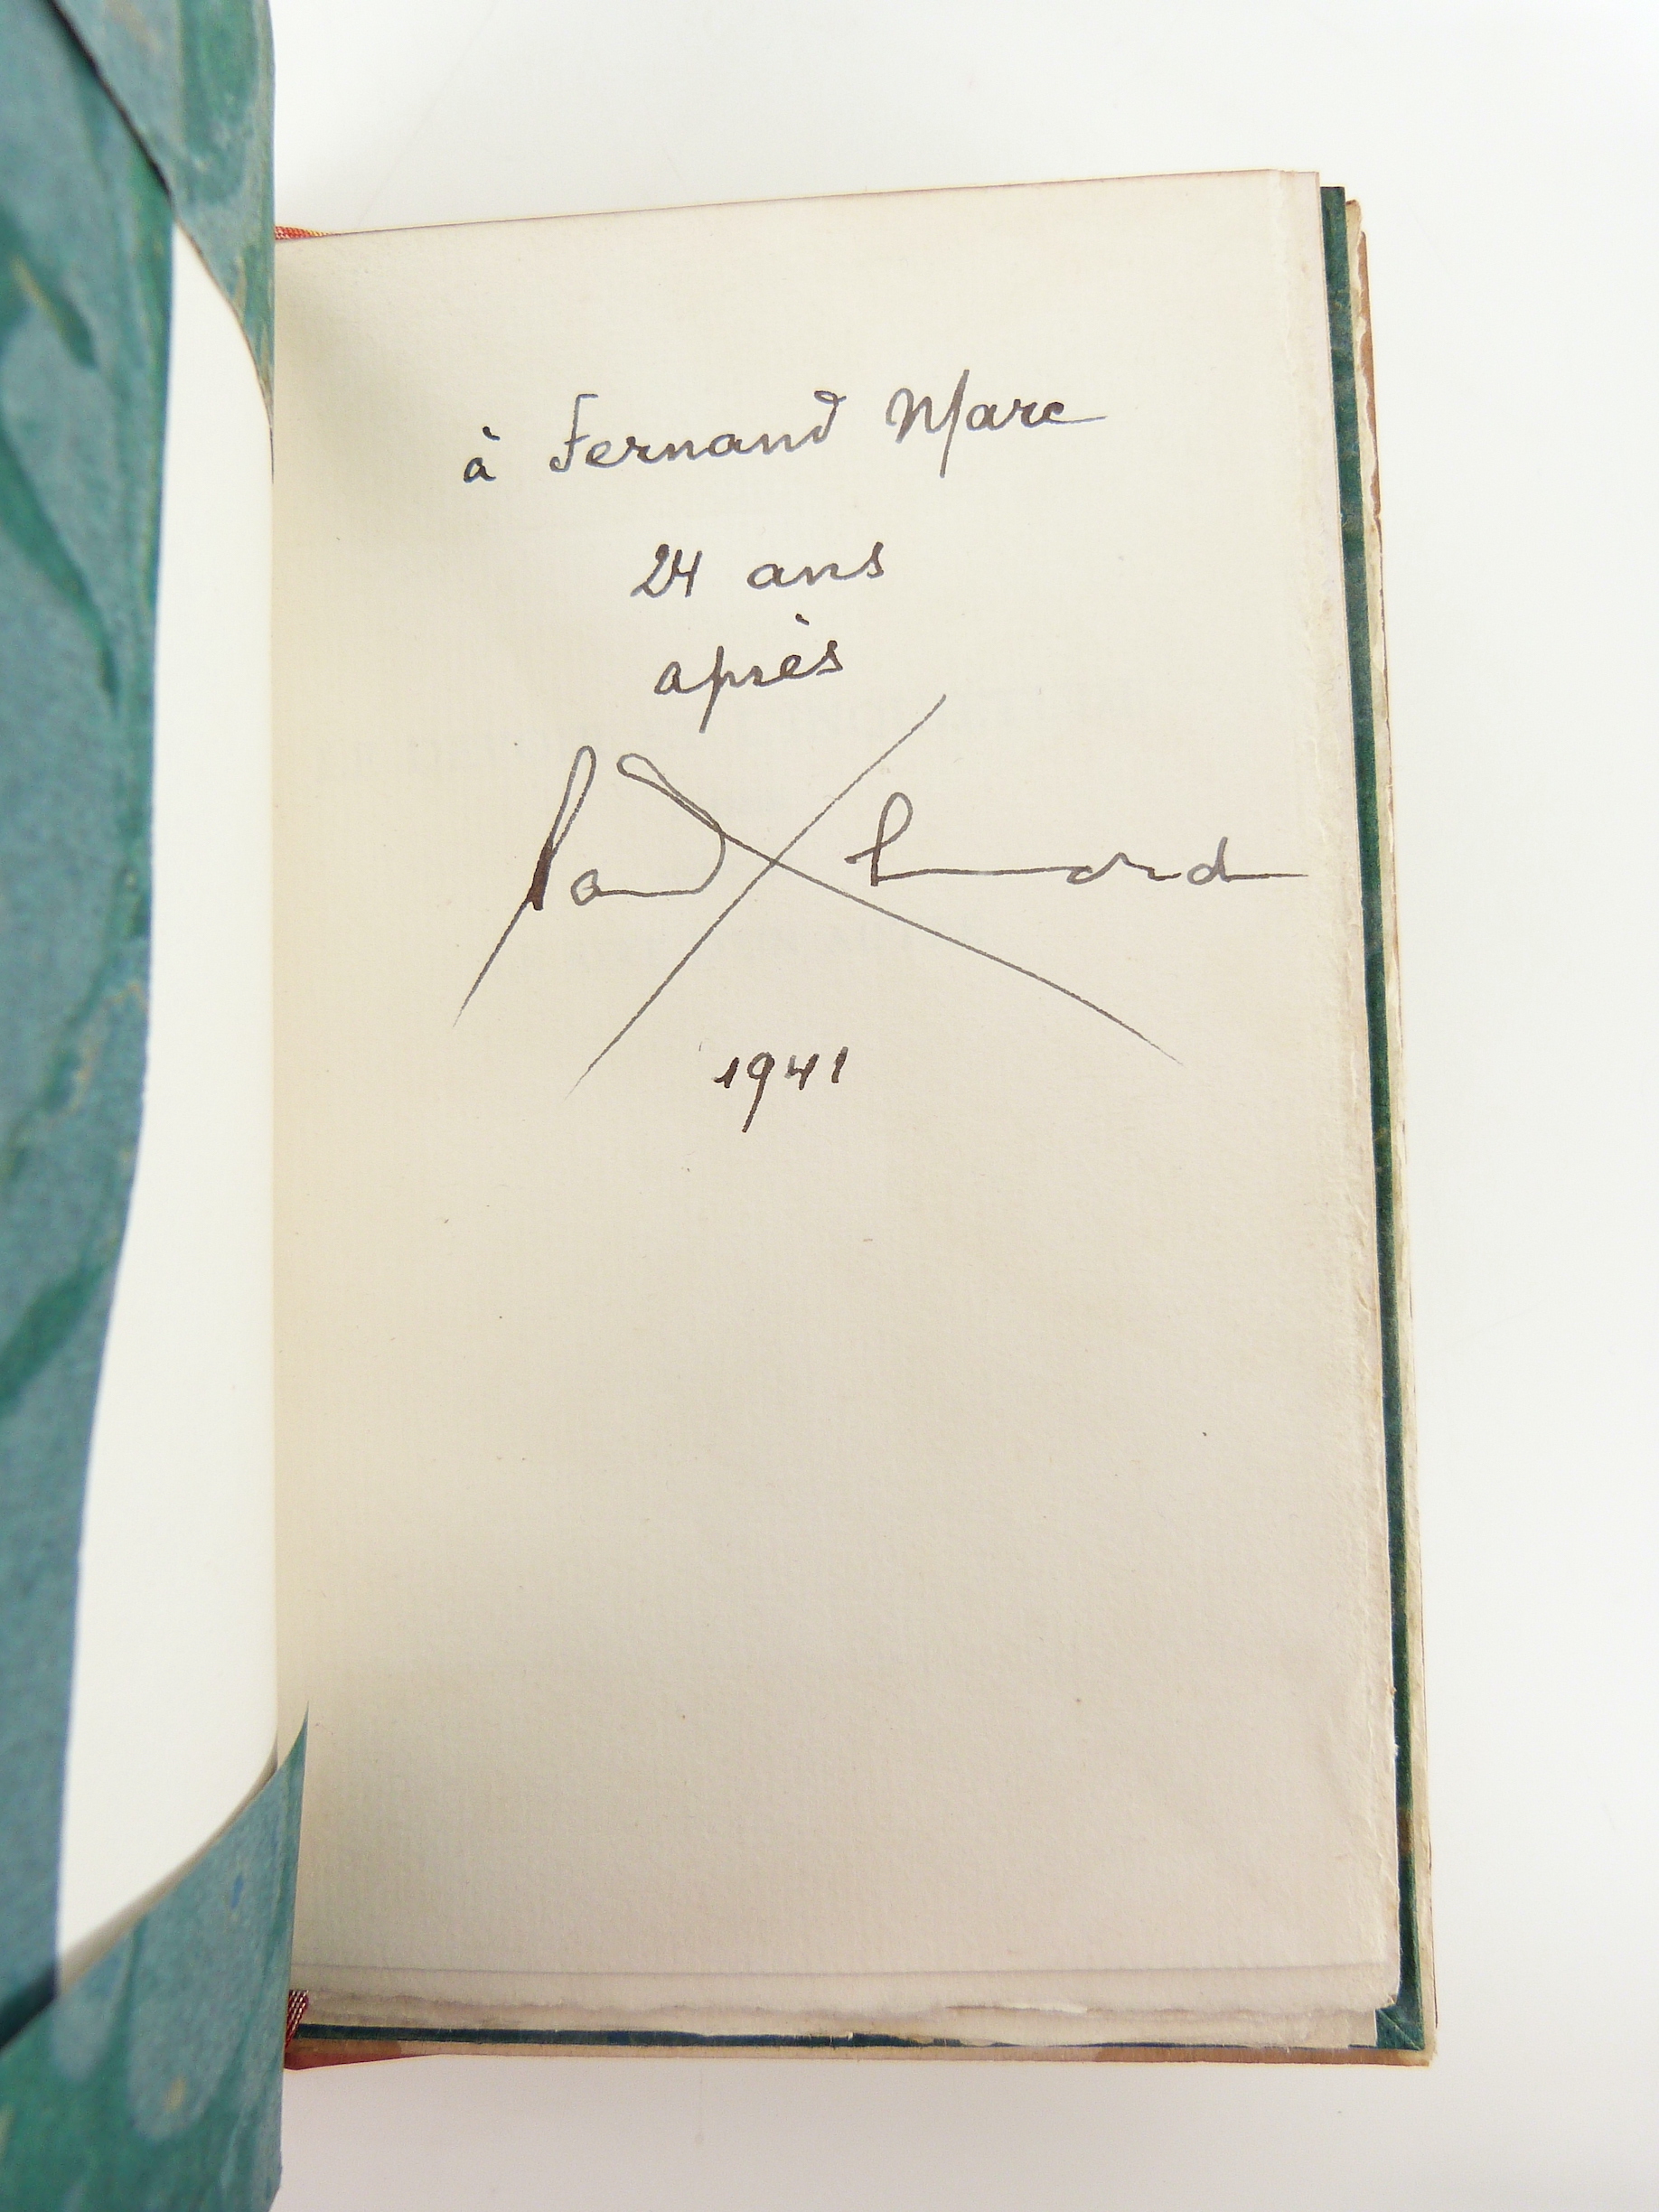 à Fernand Marc
24 ans
après
Paul Eluard
1941